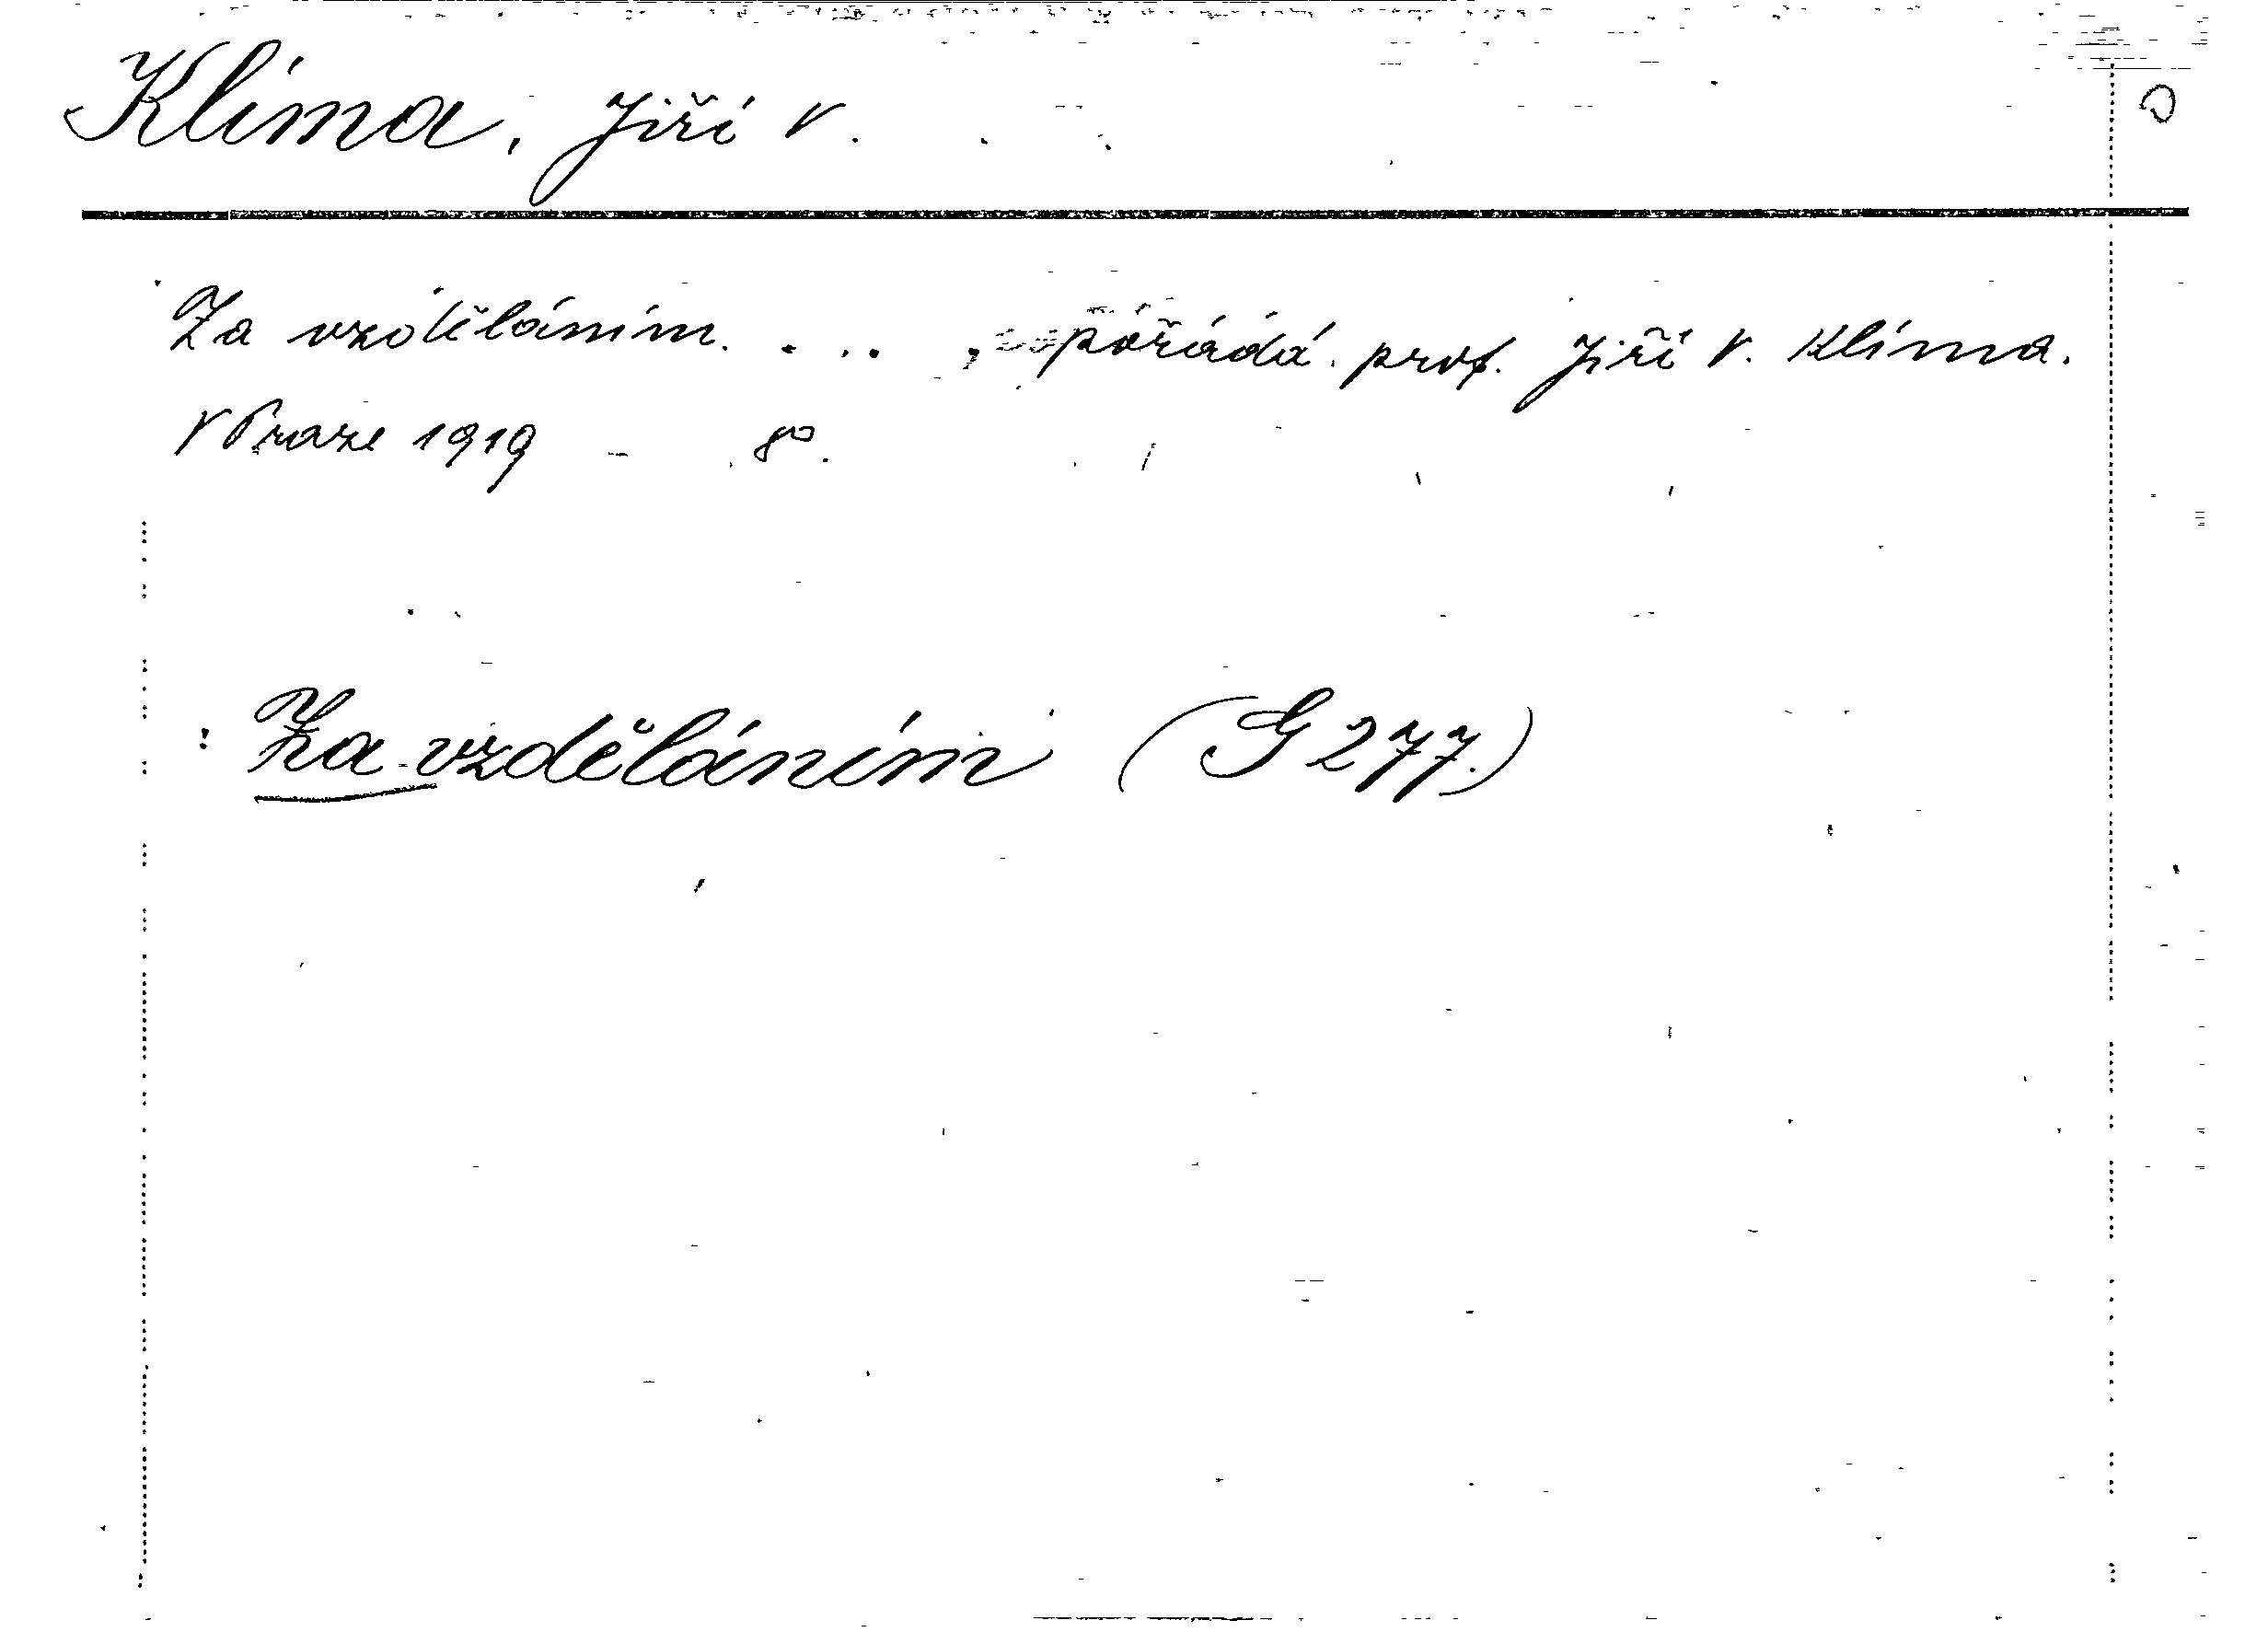 Klíma, Jiří V.
Za vzděláním. . . . , pořádá prof. Jiří V. Klíma.
V Praze 1919 - 8°.
Za vzděláním (G 277.)